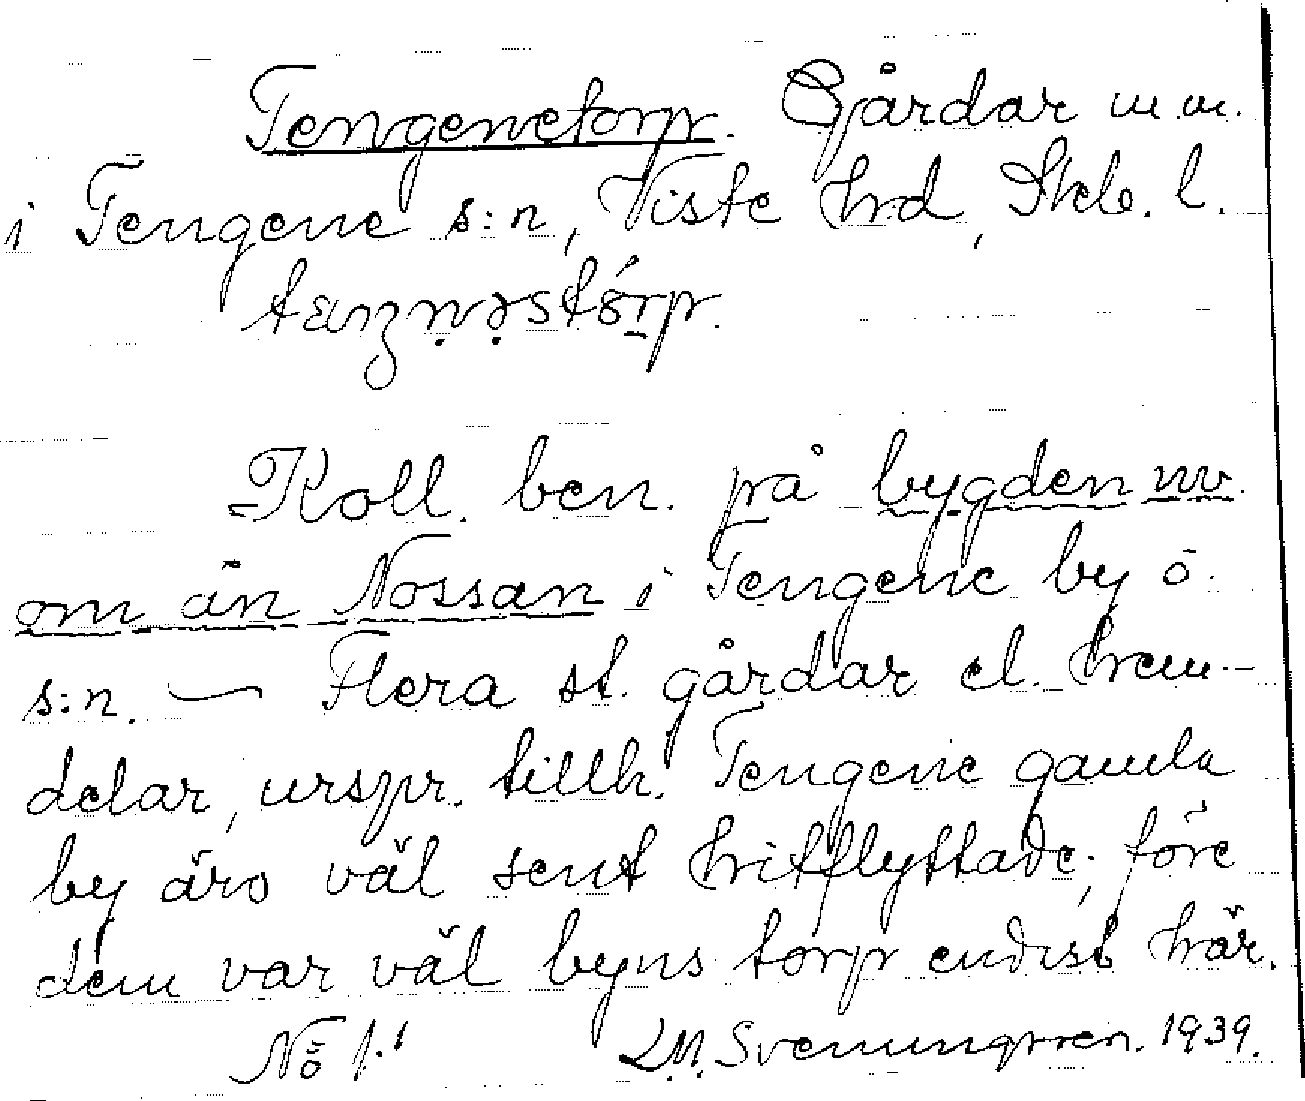 Tengenetorp. Gårdar m.m.
i Tengene s:n, Viste hrd, Skb. l.
Koll. ben. på bygden nv.
om ån Nossan i Tengene by ö.
s:n. — Flera st. gårdar el. hem-
delar, urspr. tillh. Tengene gamla
by äro väl sent hitflyttade; före
dem var väl byns torp endast här.
Nö L.M. Svenungsson. 1939.